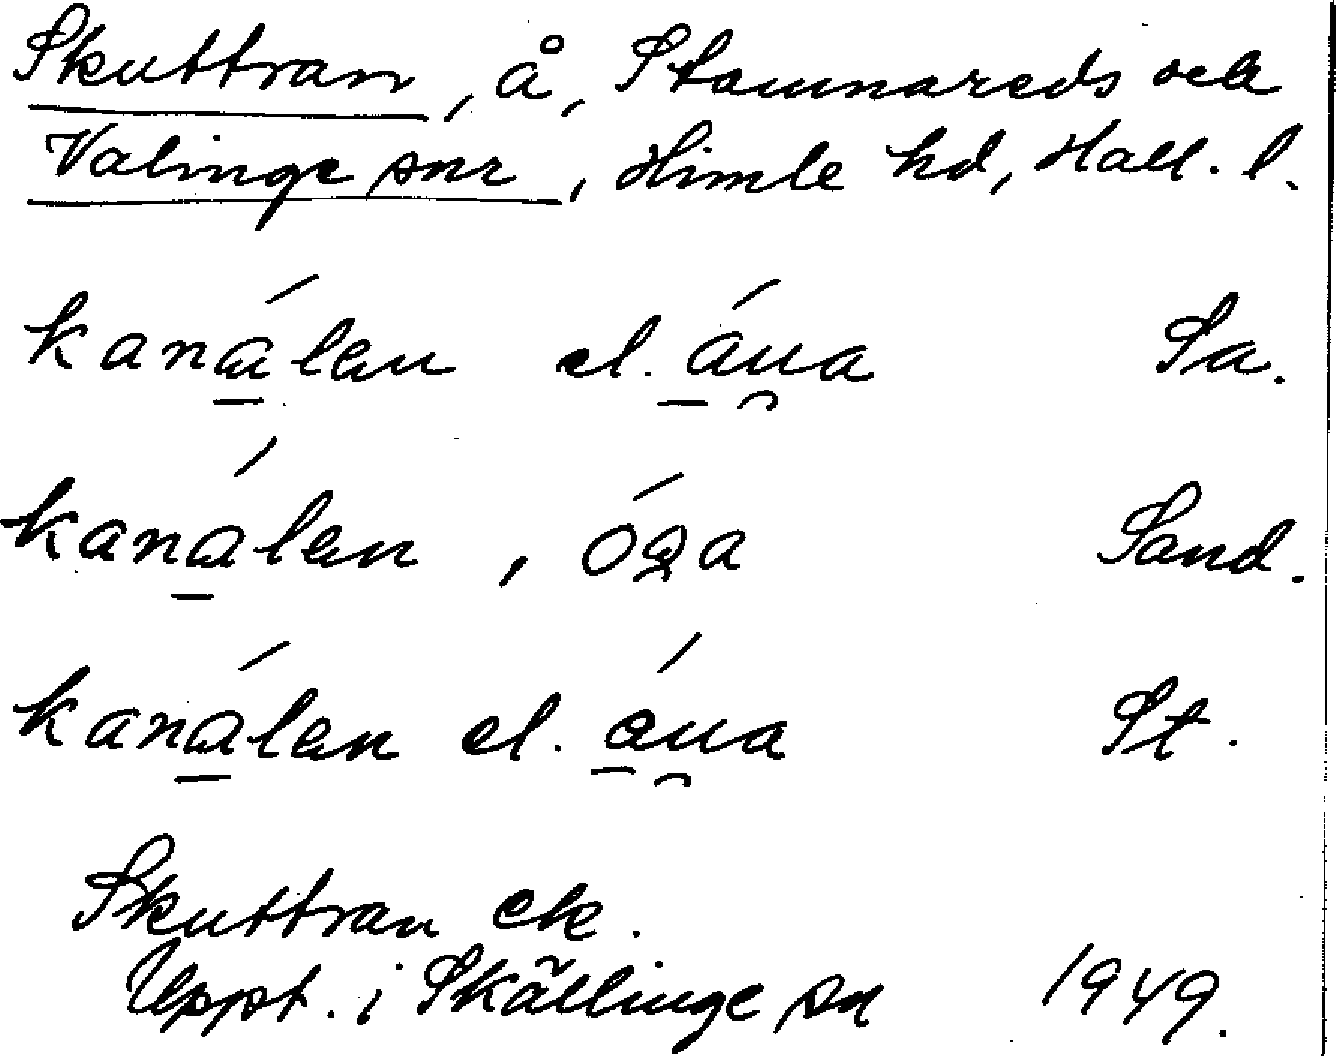 Skuttran, å, Stamnareds och
Valinge snr, Himle hd, Hall. l.
kanálen el. áua Sa.
kanálen, óa Sand.
kanálen el. áua St.
Skuttran ek.
Uppt. i Skällinge sn 1949.